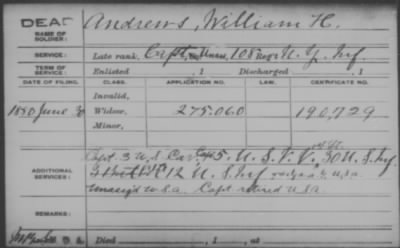 DEAD
NAME OF SOLDIER: Andrews, William H.
SERVICE: Late rank, Capt, 108 Reg't N.Y. Inf
TERM OF SERVICE: Enlisted , 1 Discharged , 1
DATE OF FILING. CLASS. APPLICATION NO. LAW. CERTIFICATE NO.
Invalid,
1880 June 30 Widow, 275.060 190,729
Minor,
Capt. 3 U.S. Cav 45 U.S. 30 U.S. Inf
ADDITIONAL SERVICES: 12 U.S. Inf
unasig'd Capt retired USA
REMARKS:
Died , 1 , at